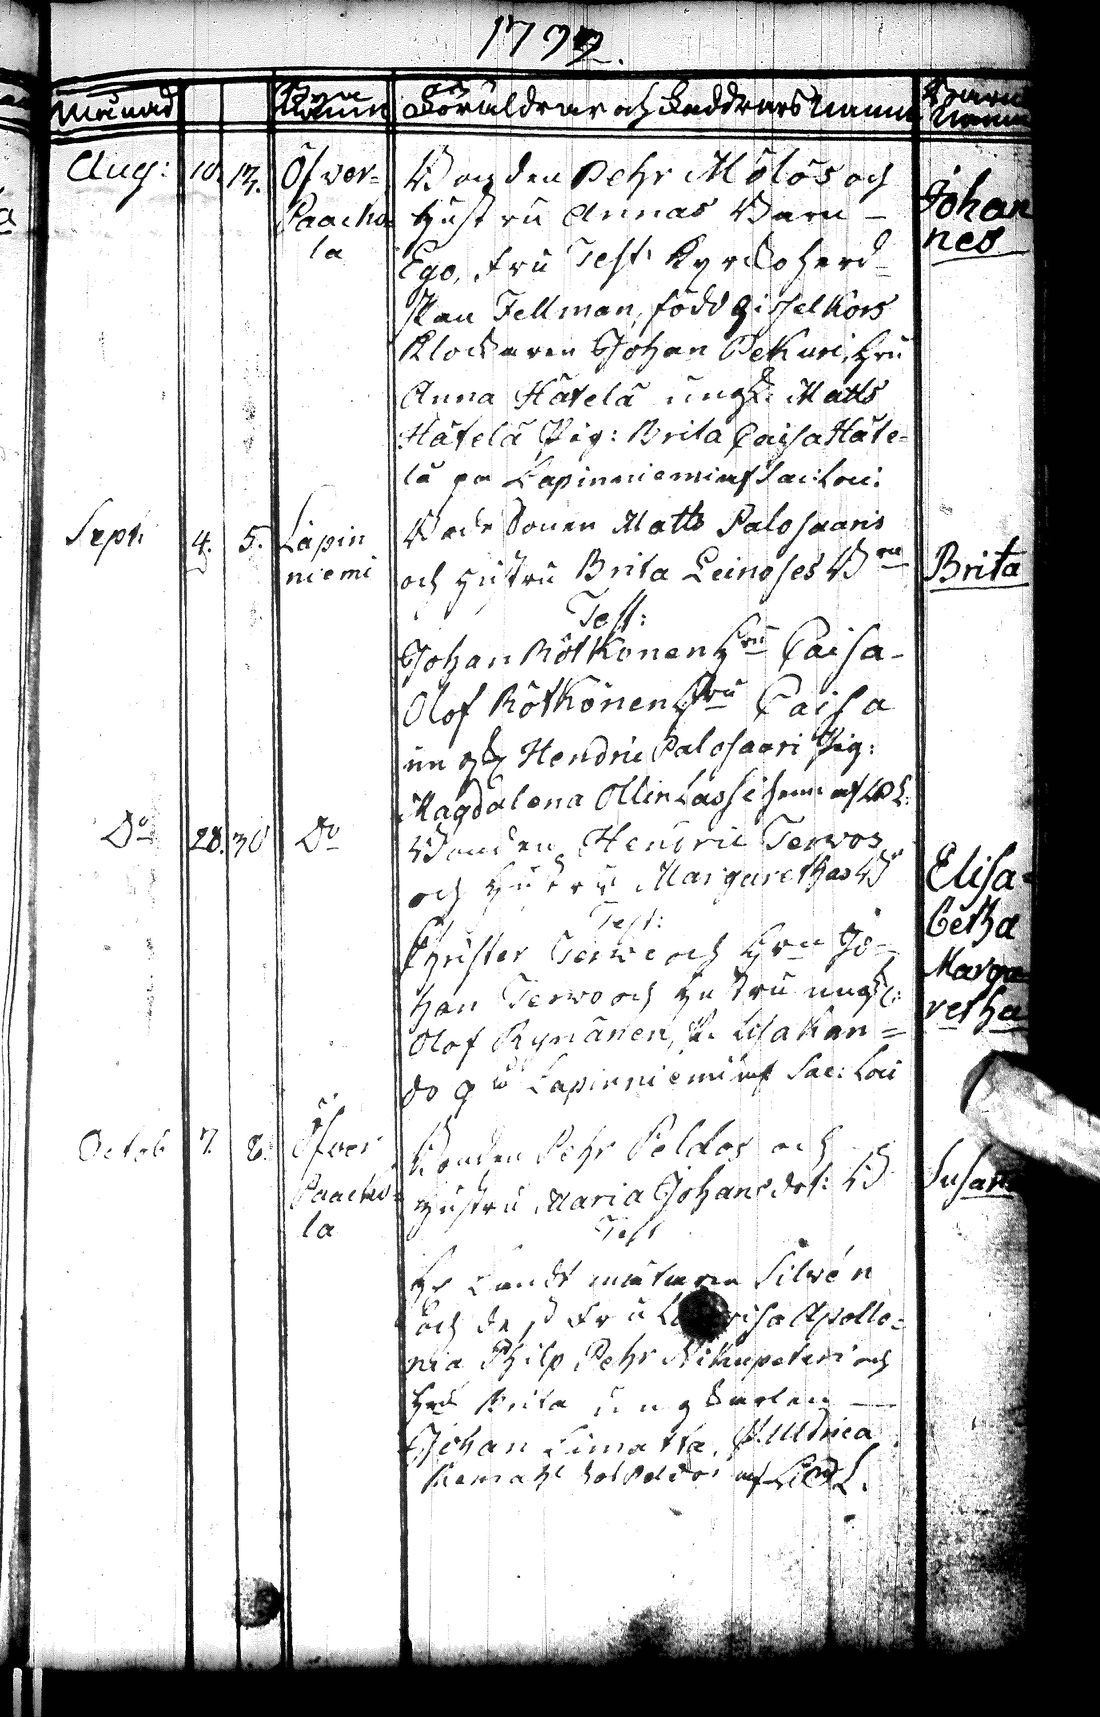 1792.
Månad
Byn Namn
Föräldrar och Faddrars Namn
Barns Namn
Aug: 10. 13. Öfver-
Paacko-
la
Bonden Pehr Mölös och
Hustru Annas Barn -
Ego, Fru Test: Kyrckoherd-
skan Fellman, född Gisselkors
Klockaren Johan Pekuri, Hru
Anna Hätelä ungk: Matts
Hätelä Pig: Brita Caisa Häte-
lä på Lapinniemi af Sac: Loci:
Johan
nes
Sept: 4. 5. Lapin
niemi
Bonde Sonen Matts Palosaaris
och Hustru Brita Leinoses Brn
Test:
Johan Rötkönen Hru Caisa -
Olof Rötkönen Hru Caisa
ungk Hendric Palosaari Pig:
Magdalena Ollinlassi
Brita
Do 28. 30 Do
Bonden Hendric Terwos
och Hustru Margarethas B
Test:
Christer Terwo och Hru Jo-
han Terwo och Hustru ungk:
Olof Rynänen, P.
Lapinniemi af Sac: Loci
Elisa-
betha
Marga-
retha
Octob 7. 8. Öfver
Paacko-
la
Bonden Pehr Peldos och
Hustru Maria Johansdot: B
Test
Hr Landtmätaren Silvén
och dess Fru Apollo-
nia Philp Pehr och
Hru Brita ungkarlen
Johan Limatta, P. Ulrica
af
Susan